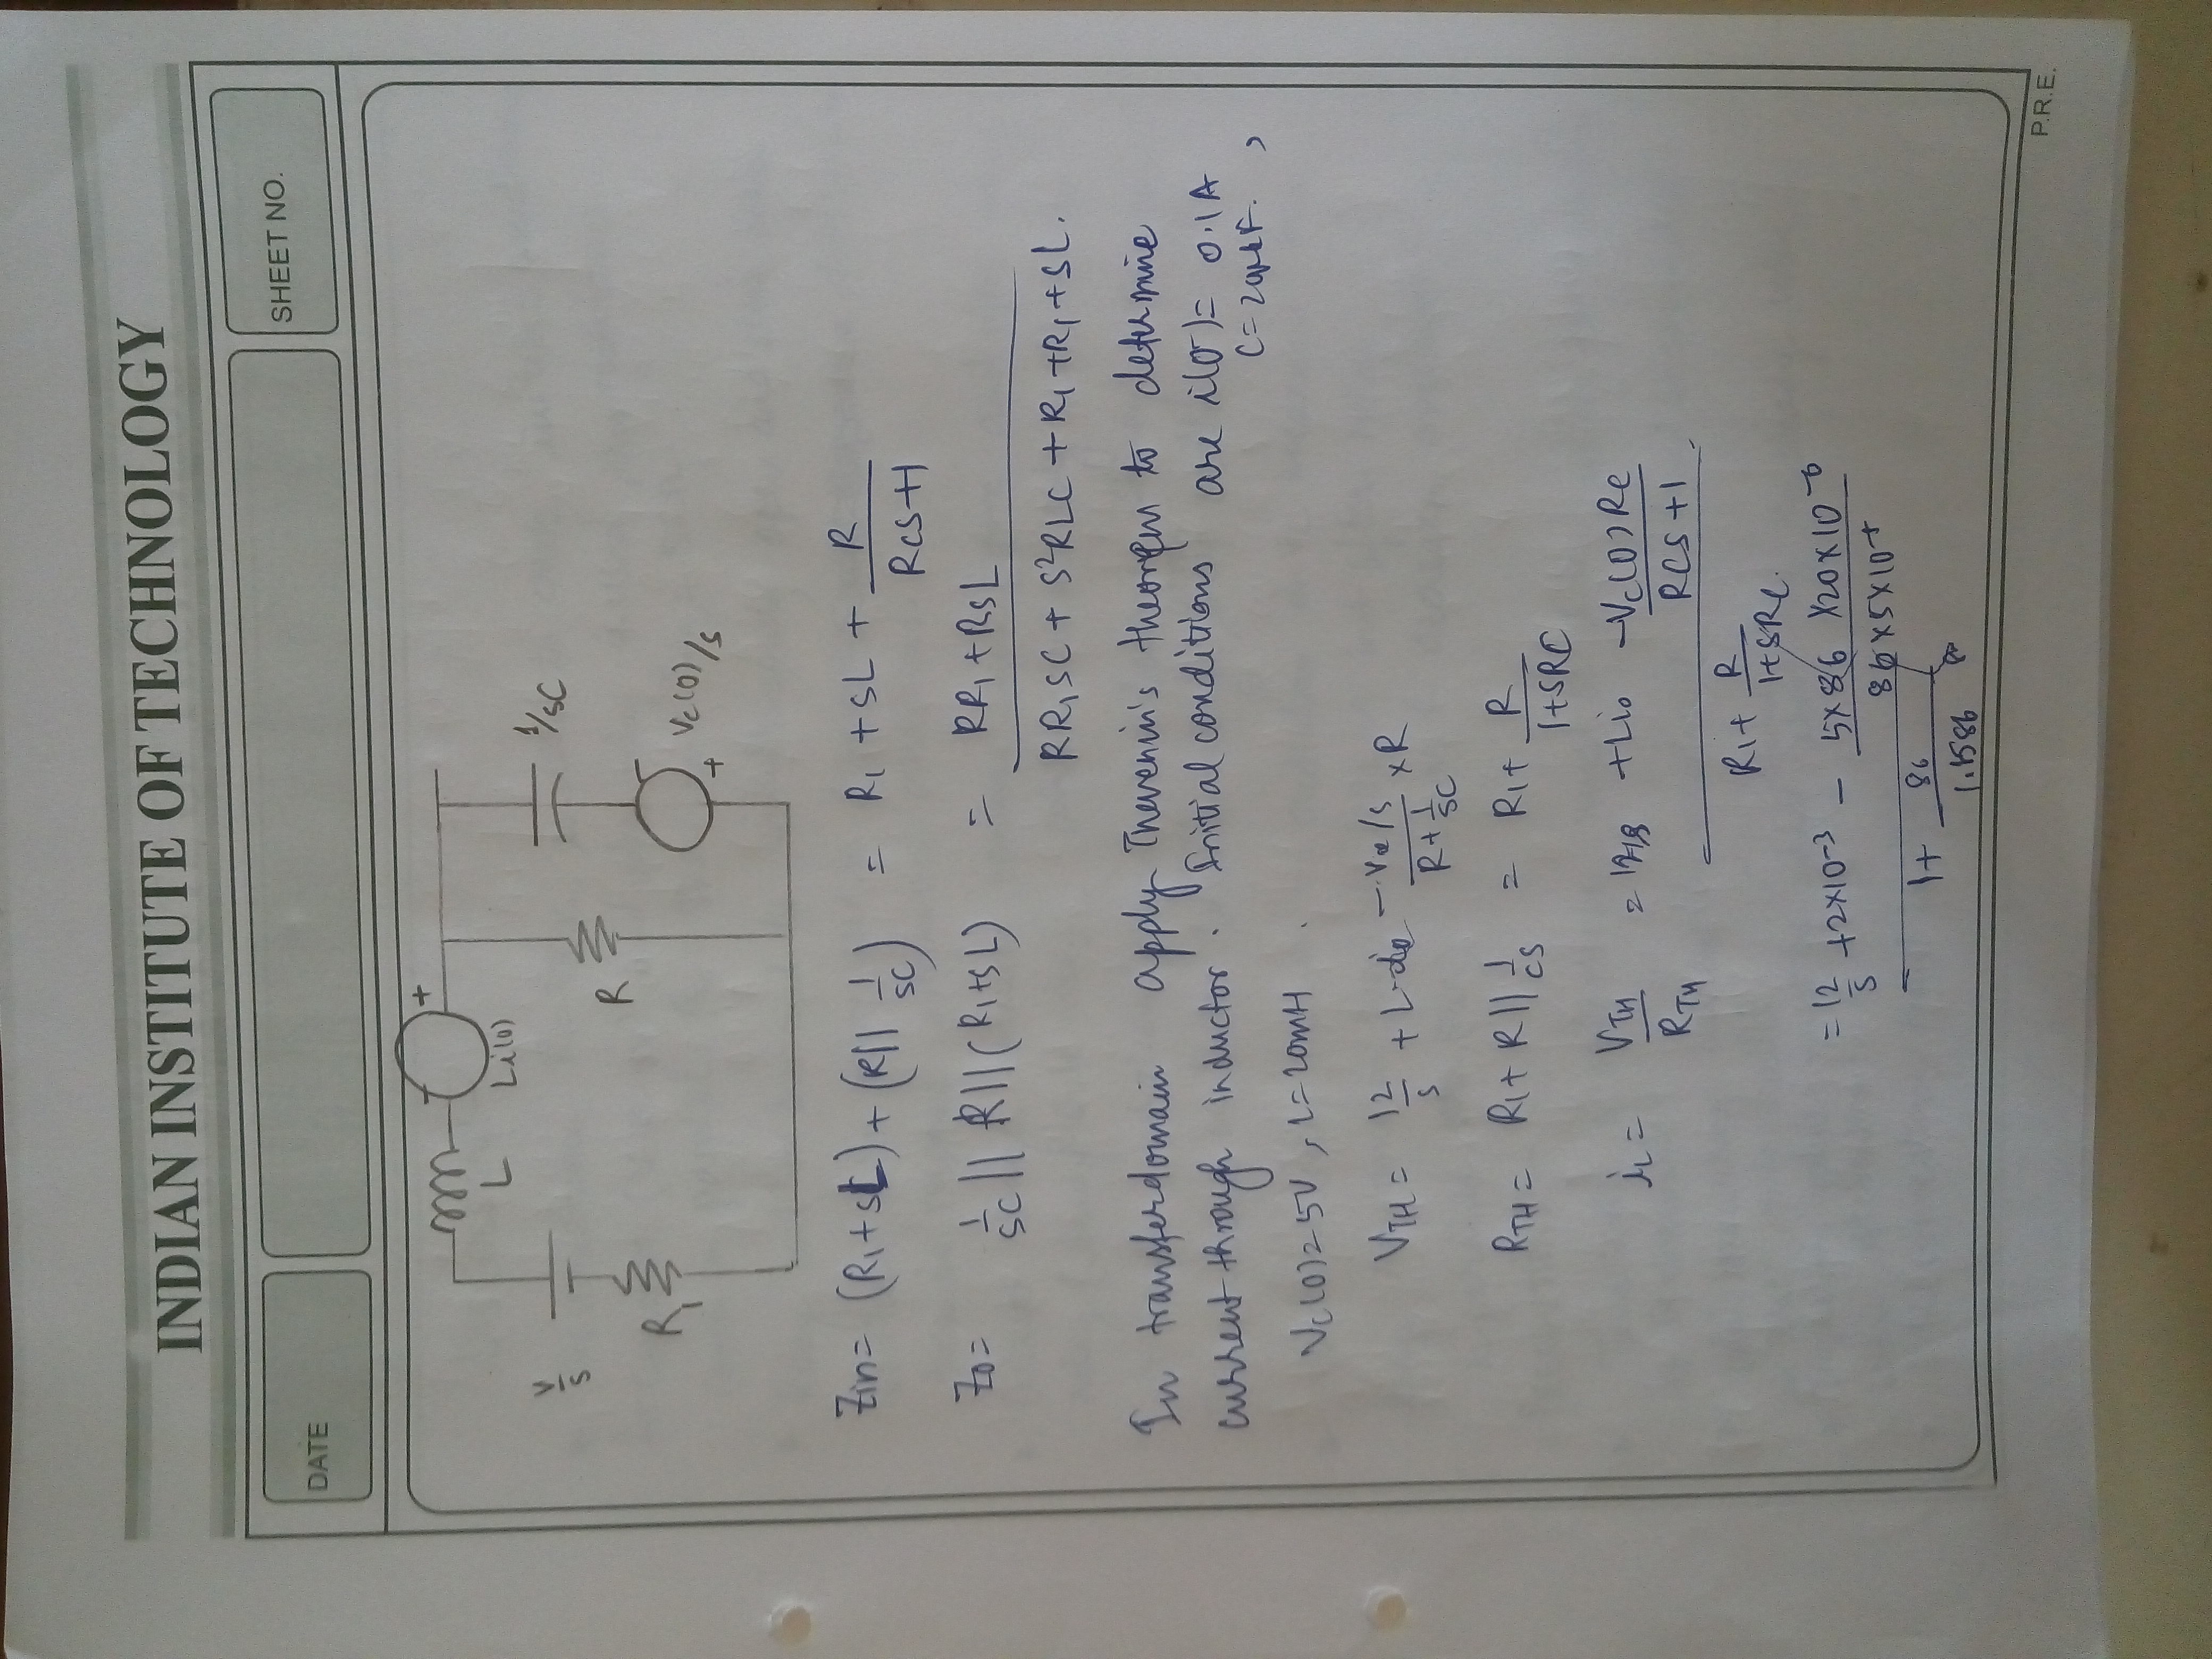 INDIAN INSTITUTE OF TECHNOLOGY
DATE
SHEET NO.
- +
L Li(0)
V/S
R1
R
1/SC
-
Vc(0)/S
+
Zin = (R1+SL) + (R|| 1/SC) = R1 + SL + R/(RCS+1)
Zo = 1/SC || R || (R1+SL) = (RR1 + RSL)/(RR1SC + S²RLC + R1 + R1 + SL).
In transferdomain apply Thevenin's theorem to determine
current through inductor. Initial conditions are i(0-) = 0.1A
C = 20µF. ,
Vc(0) = 5V, L = 20mH .
VTH = 12/S + L - Vc/S/(R + 1/SC) × R
RTH = R1 + R || 1/CS = R1 + R/(1+SRC)
iL = VTH/RTH = 12/S + Li0 - Vc(0)RC/(RCS+1)
R1 + R/(1+SRC).
= 12/S + 2×10-3 - 5×86 ×20×10-6
86×5×10
1 + 86/1.1586
P.R.E.